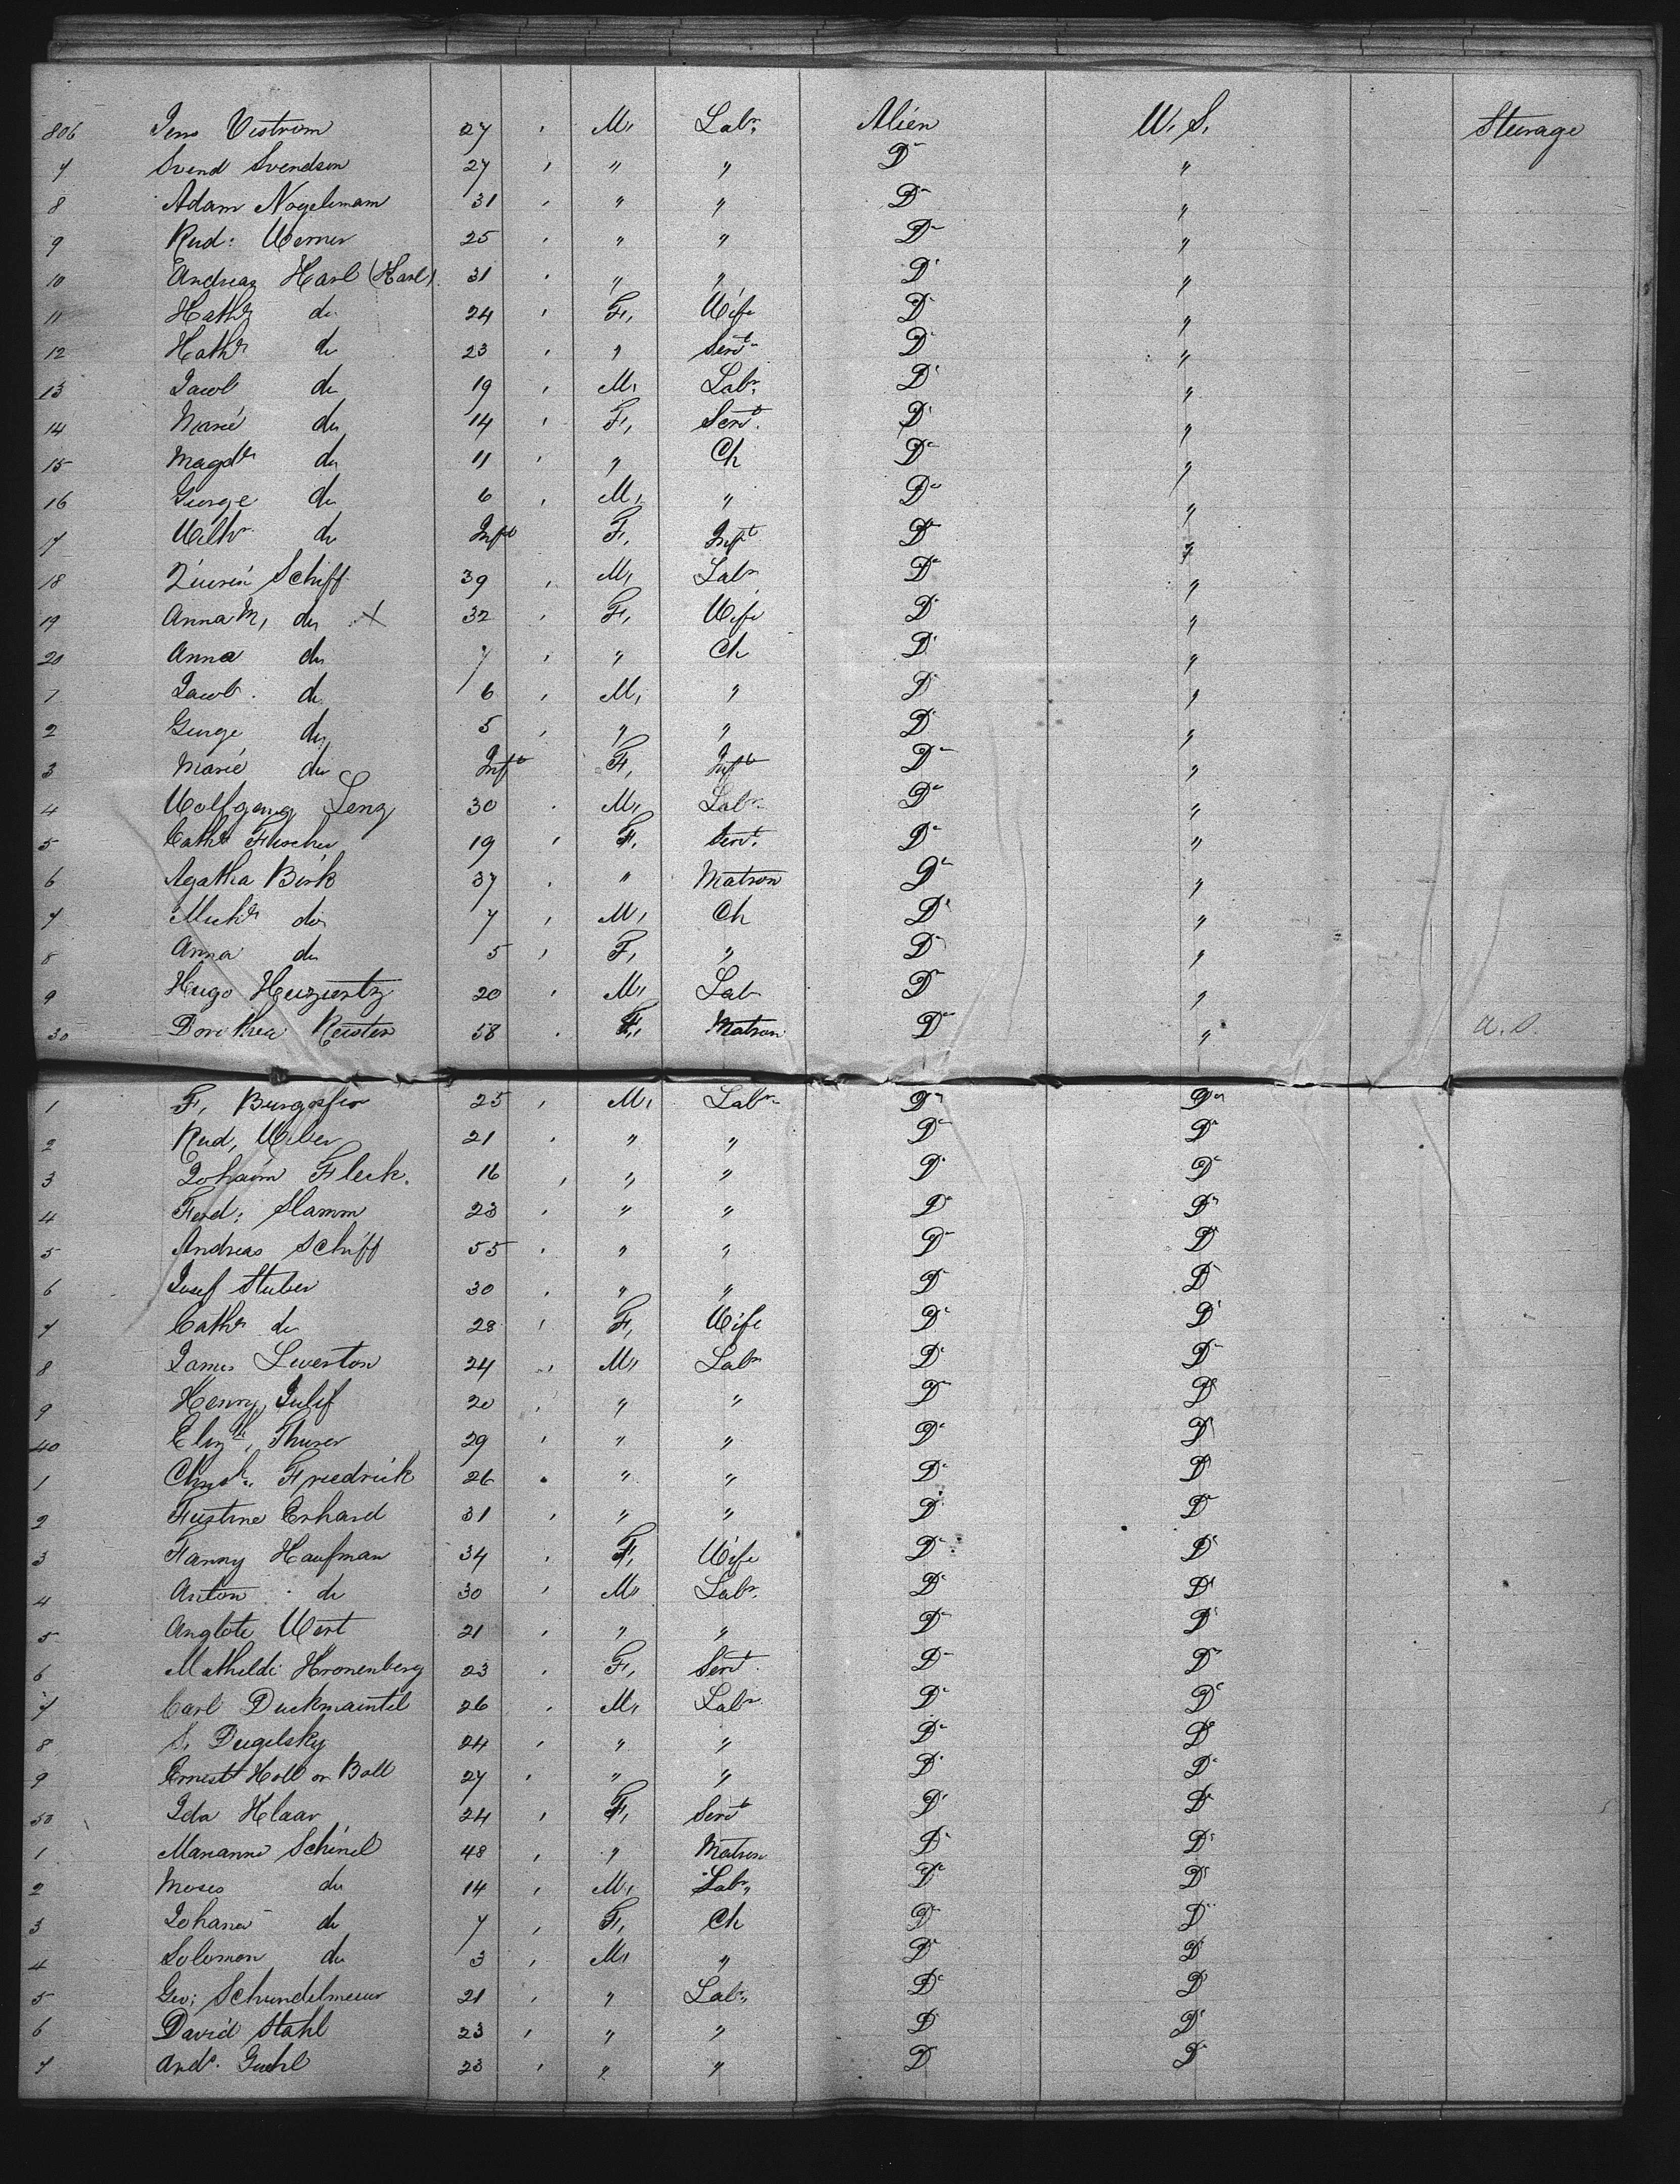 806 Jens Vistrom 27 , M, Labr. Alien U. S. Steerage
7 Svend Svendson 27 , " " Do "
8 Adam Nogelmann 31 , " " Do "
9 Rud: Werner 25 , " " Do "
10 Andreas Karl (Karl) 31 , " " Do "
11 Kathr do 24 , F, Wife Do "
12 Kathr do 23 , " Servt Do "
13 Jacob do 19 , M, Labr. Do "
14 Marie do 14 , F, Servt. Do "
15 Magdr do 11 , " Ch Do "
16 George do 6 , M, " Do "
17 Wilhr do Inft F, Inft Do "
18 Schiff 39 , M, Labr Do "
19 Anna M, do X 32 , F, Wife Do "
20 Anna do 7 , " Ch Do "
1 Jacob do 6 , M, " Do "
2 George do 5 , " " Do "
3 Marie do Inft F, Inft Do "
4 Wolfgang Lenz 30 , M, Labr Do "
5 Cathr Fischer 19 , F, Servt. Do "
6 Agatha Birk 37 , " Matron Do "
7 Michr do 7 , M, Ch Do "
8 Anna do 5 , F, " Do "
9 Hugo 20 , M, Lab Do "
30 Dorothea Reister 58 , F, Matron Do " U.S.
1 F, 25 , M, Labr Do Do
2 Rud, Weber 21 , " " Do Do
3 Johann Fleck. 16 , " " Do Do
4 Ferd: Slamm 23 , " " Do Do
5 Andreas Schiff 55 , " " Do Do
6 Josef Stuber 30 , " " Do Do
7 Cathr do 28 , F, Wife Do Do
8 James Liverton 24 , M, Labr Do Do
9 Henry Julif 20 , " " Do Do
40 Elizth, Thurer 29 , " " Do Do
1 Chrsth: Friedrick 26 , " " Do Do
2 Fustine Erhard 31 , " " Do Do
3 Fanny Kaufman 34 , F, Wife Do Do
4 Anton do 30 , M, Labr. Do Do
5 Anglote Wert 21 , " " Do Do
6 Mathilde Kronenberg 23 , F, Servt. Do Do
7 Carl Duckmaintel 26 , M, Labr Do Do
8 S. Dugilsky 24 , " " Do Do
9 Ernest Holl or Boll 27 , " " Do Do
50 Ida Klaar 24 , F, Servt Do Do
1 Marianne Schinel 48 , " Matron Do Do
2 Moses do 14 , M, Labr, Do Do
3 Johana do 7 , F, Ch Do Do
4 Solomon do 3 , M, " Do Do
5 Geo: Schundelmeier 21 , " Labr, Do Do
6 David Stahl 23 , " " Do Do
7 Andr. Guehl 23 , " " Do Do